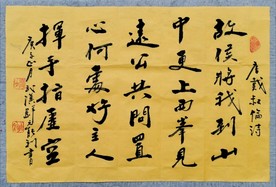 唐戴叔倫詩
故侯將我到山
中更上西峯見
遠公共問置
心何處好主人
揮手指虛空
庚子正月
書